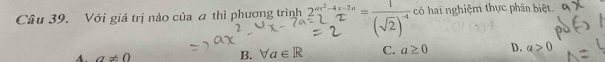 Câu 39. Với giá trị nào của a thì phương trình 2^{ax²-4x-2a} = \frac{1}{(\sqrt{2})^{-4}} có hai nghiệm thực phân biệt. ax
=> ax² - 4x - 2a = 2
= 2²
A. a ≠ 0 B. ∀a ∈ ℝ C. a ≥ 0 D. a > 0 Δ =